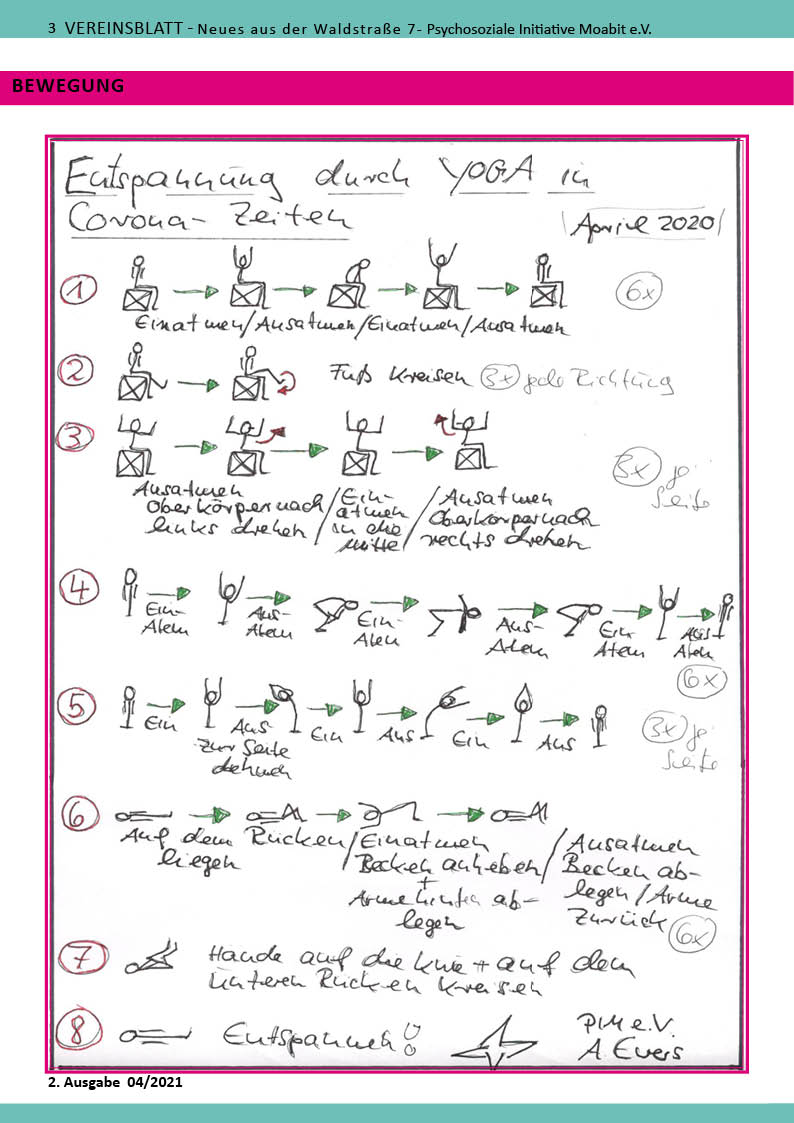 3 VEREINSBLATT - Neues aus der Waldstraße 7- Psychosoziale Initiative Moabit e.V.
BEWEGUNG
Entspannung durch YOGA in
Corona- Zeiten
April 2020
1 6x
Einatmen/Ausatmen/Einatmen/Ausatmen
2 Fuß kreisen 3x jede Richtung
3 3x je
Seite
Ausatmen
Oberkörper nach
links drehen / Ein-
atmen
in die
Mitte / Ausatmen
Oberkörper nach
rechts drehen
4 Ein-
Atem Aus-
Atem Ein-
Atem Aus-
Atem Ein
Atem Aus
Atem
6x
5 Ein Aus
zur Seite
dehnen Ein Aus Ein Aus 3x je
Seite
6
Auf dem Rücken
liegen / Einatmen
Becken anheben
+
Arme hinten ab-
legen / Ausatmen
Becken ab-
legen / Arme
zurück 6x
7 Hände auf die Knie + auf dem
unteren Rücken kreisen
8 Entspannen!
PIM e.V.
A. Evers
2. Ausgabe 04/2021